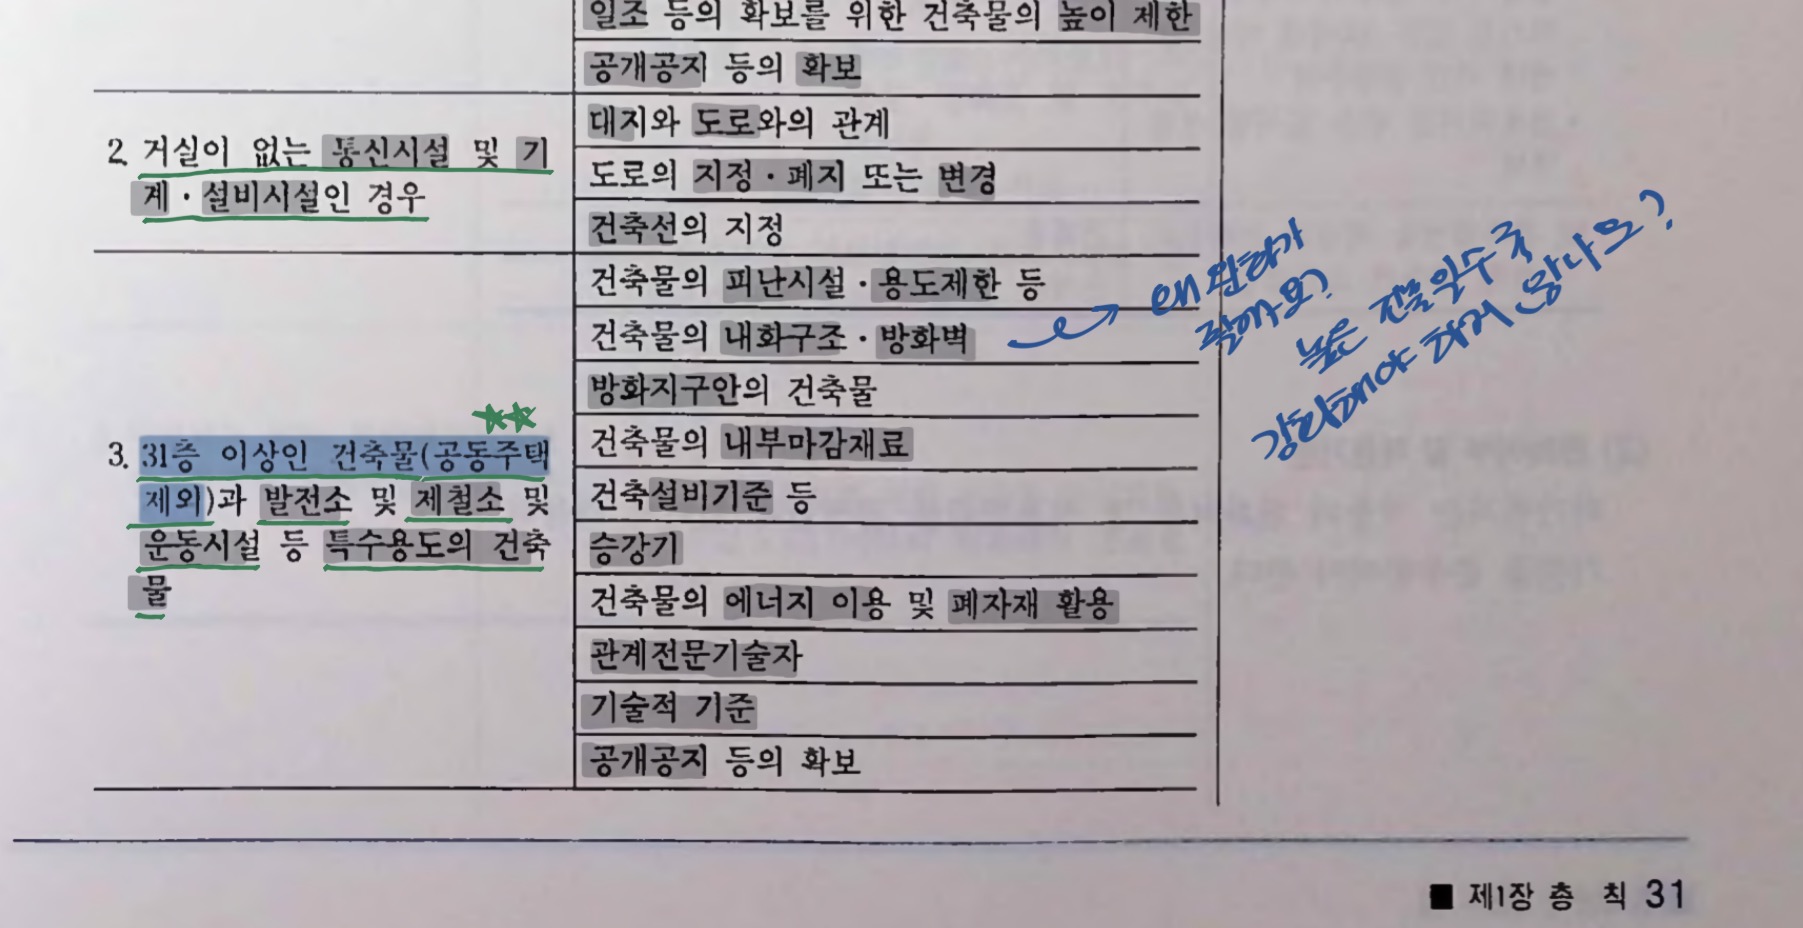 일조 등의 확보를 위한 건축물의 높이 제한
공개공지 등의 확보
2. 거실이 없는 통신시설 및 기
계·설비시설인 경우
대지와 도로와의 관계
도로의 지정·폐지 또는 변경
건축선의 지정
3. 31층 이상인 건축물(공동주택
제외)과 발전소 및 제철소 및
운동시설 등 특수용도의 건축
물
건축물의 피난시설·용도제한 등
건축물의 내화구조·방화벽
방화지구안의 건축물
건축물의 내부마감재료
건축설비기준 등
승강기
건축물의 에너지 이용 및 폐자재 활용
관계전문기술자
기술적 기준
공개공지 등의 확보
왜 완화가
높은 건물일수록
강화해야 하지 않나요?
■ 제1장 총 칙 31